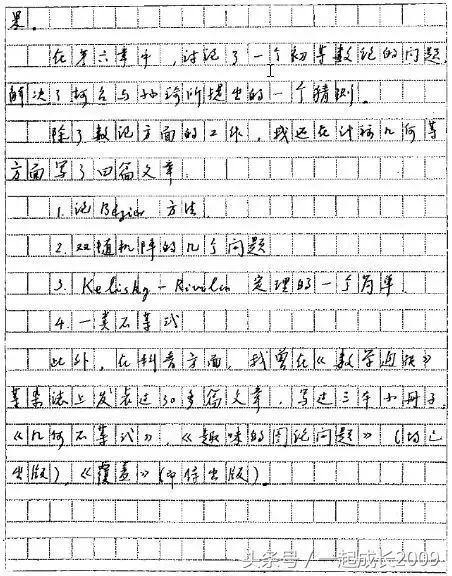 果。
在第六章中，讨论了一个初等数论的问题，
解决了柯召与孙琦所提出的一个猜测。
除了数论方面的工作，我还在计算几何等
方面写了四篇文章.
1. 论Bézier 方法
2. 双随机阵的几个问题
3. Kelisky-Rivlin 定理的一个简单
4. 一类不等式
此外，在科普方面，我曾在《数学通讯》
等杂志上发表过30多篇文章，写过三本小册子，
《几何不等式》，《趣味的图论问题》（均已
出版），《覆盖》（即 出版）。
头条号／一起成长2009